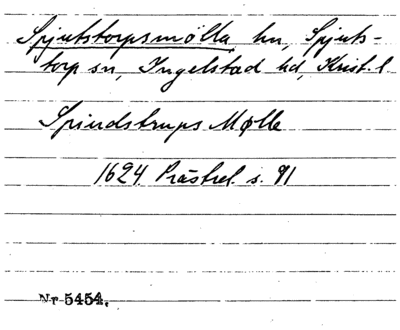 Spjutstorpsmölla hn, Spjuts-
torp sn, Ingelstad hd, Krist. l
Spiudstrups Mølle
1624 Prästrel s. 91
Nr 5454.